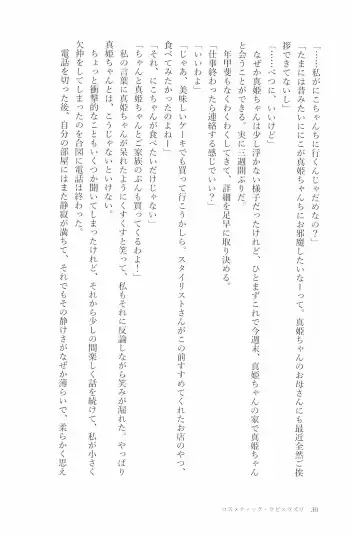 「……私がにこちゃんちに行くんじゃだめなの？」
「たまには昔みたいににこが真姫ちゃんちにお邪魔したいなーって。真姫ちゃんのお母さんにも最近全然ご挨
拶できてないし」
「……べつに、いいけど」
　なぜか真姫ちゃんは少し浮かない様子だったけれど、ひとまずこれで今週末、真姫ちゃんの家で真姫ちゃん
と会うことになった。実に三週間ぶりだ。
　年甲斐もなくわくわくしてきて、詳細を足早に取り決める。
「仕事終わったら連絡する感じでいい？」
「いいわよ」
「じゃあ、美味しいケーキでも買って行こうかしら。スタイリストさんがこの前すすめてくれたお店のやつ、
食べてみたかったのよねー」
「それ、にこちゃんが食べたいだけじゃない」
「ちゃんと真姫ちゃんとご家族のぶんも買ってくるわよ！」
　私の言葉に真姫ちゃんが呆れたようにくすくすと笑って、私もそれに反論しながら笑みが漏れた。やっぱり
真姫ちゃんとは、こうじゃないといけない。
　ちょっと衝撃的なこともいくつか聞いてしまったけれど、それから少しの間楽しく話を続けて、私が小さく
欠伸をしてしまったのを合図に電話は終わった。
　電話を切った後、自分の部屋にはまた静寂が満ちて、それでもその静けさがなぜか薄らいで、柔らかく思え
コスメティック・ラピスラズリ
30